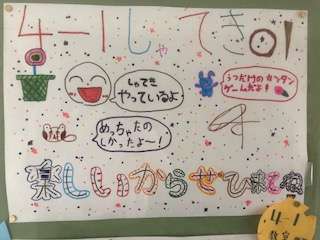 4-1しゃてき01
しゃてき
やっているよ
うつだけのカンタン
ゲームだよ!
めっちゃたの
しかったよ〜!
楽しいからぜひ来てね
4-1
教室